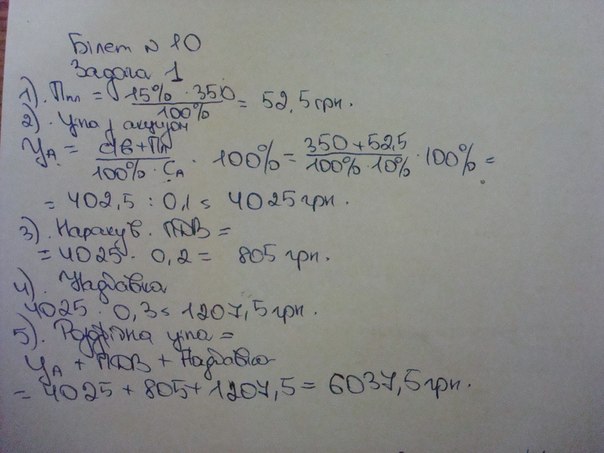 Білет № 10
Задача 1
1). Ппл = 15% · 350 / 100% = 52,5 грн.
2). Ціна з акцизом
ЦА = СВ + Пп / 100% · СА · 100% = 350 + 52,5 / 100% · 10% · 100% =
= 402,5 : 0,1 = 4025 грн.
3). Нарахув. ПДВ =
= 4025 · 0,2 = 805 грн.
4). Надбавка
4025 · 0,3 = 1207,5 грн.
5). Роздрібна ціна =
ЦА + ПДВ + Надбавка
= 4025 + 805 + 1207,5 = 6037,5 грн.